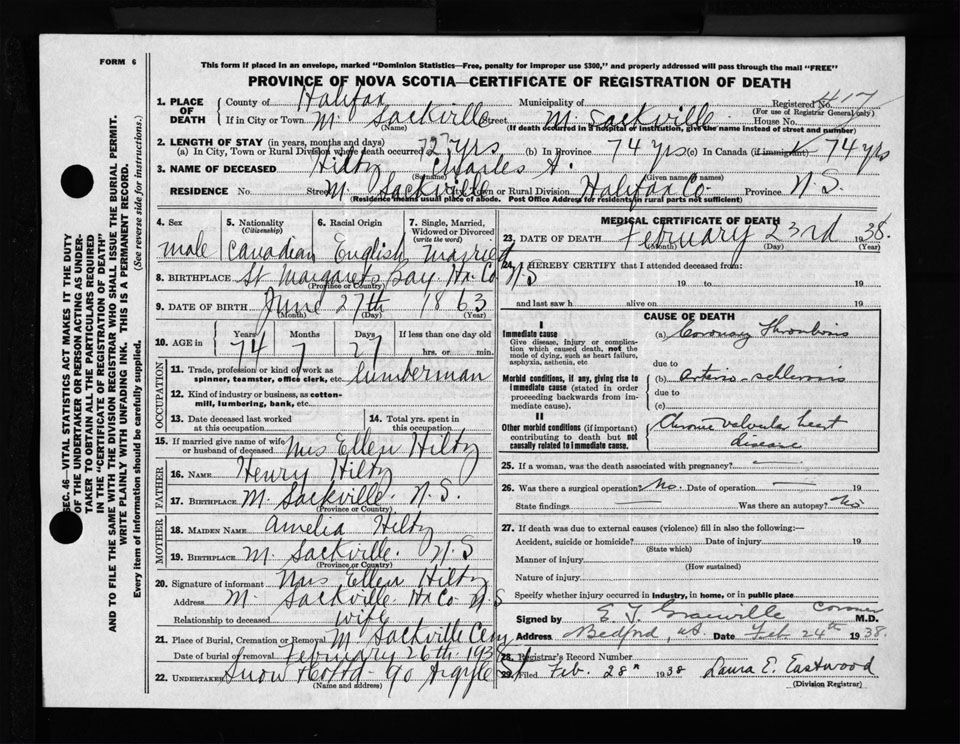 FORM 6
This form if placed in an envelope, marked "Dominion Statistics—Free, penalty for improper use $300," and properly addressed will pass through the mail "FREE"
PROVINCE OF NOVA SCOTIA—CERTIFICATE OF REGISTRATION OF DEATH
SEC. 46—VITAL STATISTICS ACT MAKES IT THE DUTY
OF THE UNDERTAKER OR PERSON ACTING AS UNDER-
TAKER TO OBTAIN ALL THE PARTICULARS REQUIRED
IN THE "CERTIFICATE OF REGISTRATION OF DEATH"
AND TO FILE THE SAME WITH THE DIVISION REGISTRAR WHO SHALL ISSUE THE BURIAL PERMIT.
WRITE PLAINLY WITH UNFADING INK. THIS IS A PERMANENT RECORD.
Every item of information should be carefully supplied. (See reverse side for instructions.)
1. PLACE OF DEATH County of Halifax Municipality of Registered No. 417
(For use of Registrar General only)
If in City or Town M. Sackville Street M. Sackville House No.
(Name) (If death occurred in a hospital or institution, give the name instead of street and number)
2. LENGTH OF STAY (in years, months and days)
(a) In City, Town or Rural Division where death occurred 72 yrs (b) In Province 74 yrs (c) In Canada (if immigrant) 74 yrs
3. NAME OF DECEASED Hiltz Charles A.
(Surname) (Given name or names)
RESIDENCE No. Street M. Sackville City, Town or Rural Division Halifax Co. Province N.S.
(Residence means usual place of abode. Post Office Address for residents in rural parts not sufficient)
4. Sex male
5. Nationality (Citizenship) Canadian
6. Racial Origin English
7. Single, Married, Widowed or Divorced (write the word) Married
8. BIRTHPLACE St. Margarets Bay. Hx Co N S
(Province or Country)
9. DATE OF BIRTH June 27th 1863
(Month) (Day) (Year)
10. AGE in Years 74 Months 7 Days 27 If less than one day old
hrs. or min.
OCCUPATION
11. Trade, profession or kind of work as spinner, teamster, office clerk, etc. lumberman
12. Kind of industry or business, as cotton-mill, lumbering, bank, etc.
13. Date deceased last worked at this occupation
14. Total yrs. spent in this occupation
15. If married give name of wife or husband of deceased Mrs Ellen Hiltz
FATHER
16. NAME Henry Hiltz
17. BIRTHPLACE M. Sackville. N.S.
(Province or Country)
MOTHER
18. MAIDEN NAME Amelia Hiltz
19. BIRTHPLACE M. Sackville. N.S
(Province or Country)
20. Signature of informant Mrs Ellen Hiltz
Address M. Sackville Hx Co N.S
Relationship to deceased wife
21. Place of Burial, Cremation or Removal M Sackville Cem
Date of burial or removal February 26th 1938
22. UNDERTAKER Snow 90 Argyle St
(Name and address)
MEDICAL CERTIFICATE OF DEATH
23. DATE OF DEATH February 23rd 1938.
(Month) (Day) (Year)
24. I HEREBY CERTIFY that I attended deceased from:
19 to 19
and last saw h alive on 19
CAUSE OF DEATH
I
Immediate cause
Give disease, injury or complication which caused death, not the mode of dying, such as heart failure, asphyxia, asthenia, etc
(a) Coronary Thrombosis
due to
Morbid conditions, if any, giving rise to immediate cause (stated in order proceeding backwards from immediate cause).
(b) Arterio-sclerosis
due to
(c)
II
Other morbid conditions (if important) contributing to death but not causally related to immediate cause.
Chronic valvular heart
disease
25. If a woman, was the death associated with pregnancy? —
26. Was there a surgical operation? No. Date of operation — 19
State findings — Was there an autopsy? No
27. If death was due to external causes (violence) fill in also the following:—
Accident, suicide or homicide? Date of injury 19
(State which)
Manner of injury
(How sustained)
Nature of injury
Specify whether injury occurred in industry, in home, or in public place
Signed by Coroner M.D.
Address Bedford, N.S. Date Feb 24th 1938.
28. Registrar's Record Number
29. Filed Feb. 28th 1938 Laura E. Eastwood
(Division Registrar)